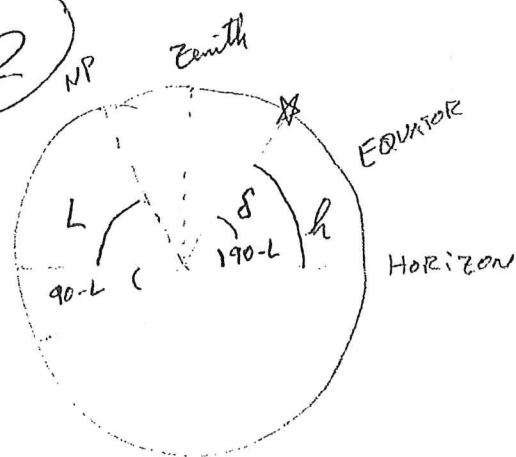 2
NP
Zenith
EQUATOR
L
δ
h
90-L
90-L
HORIZON